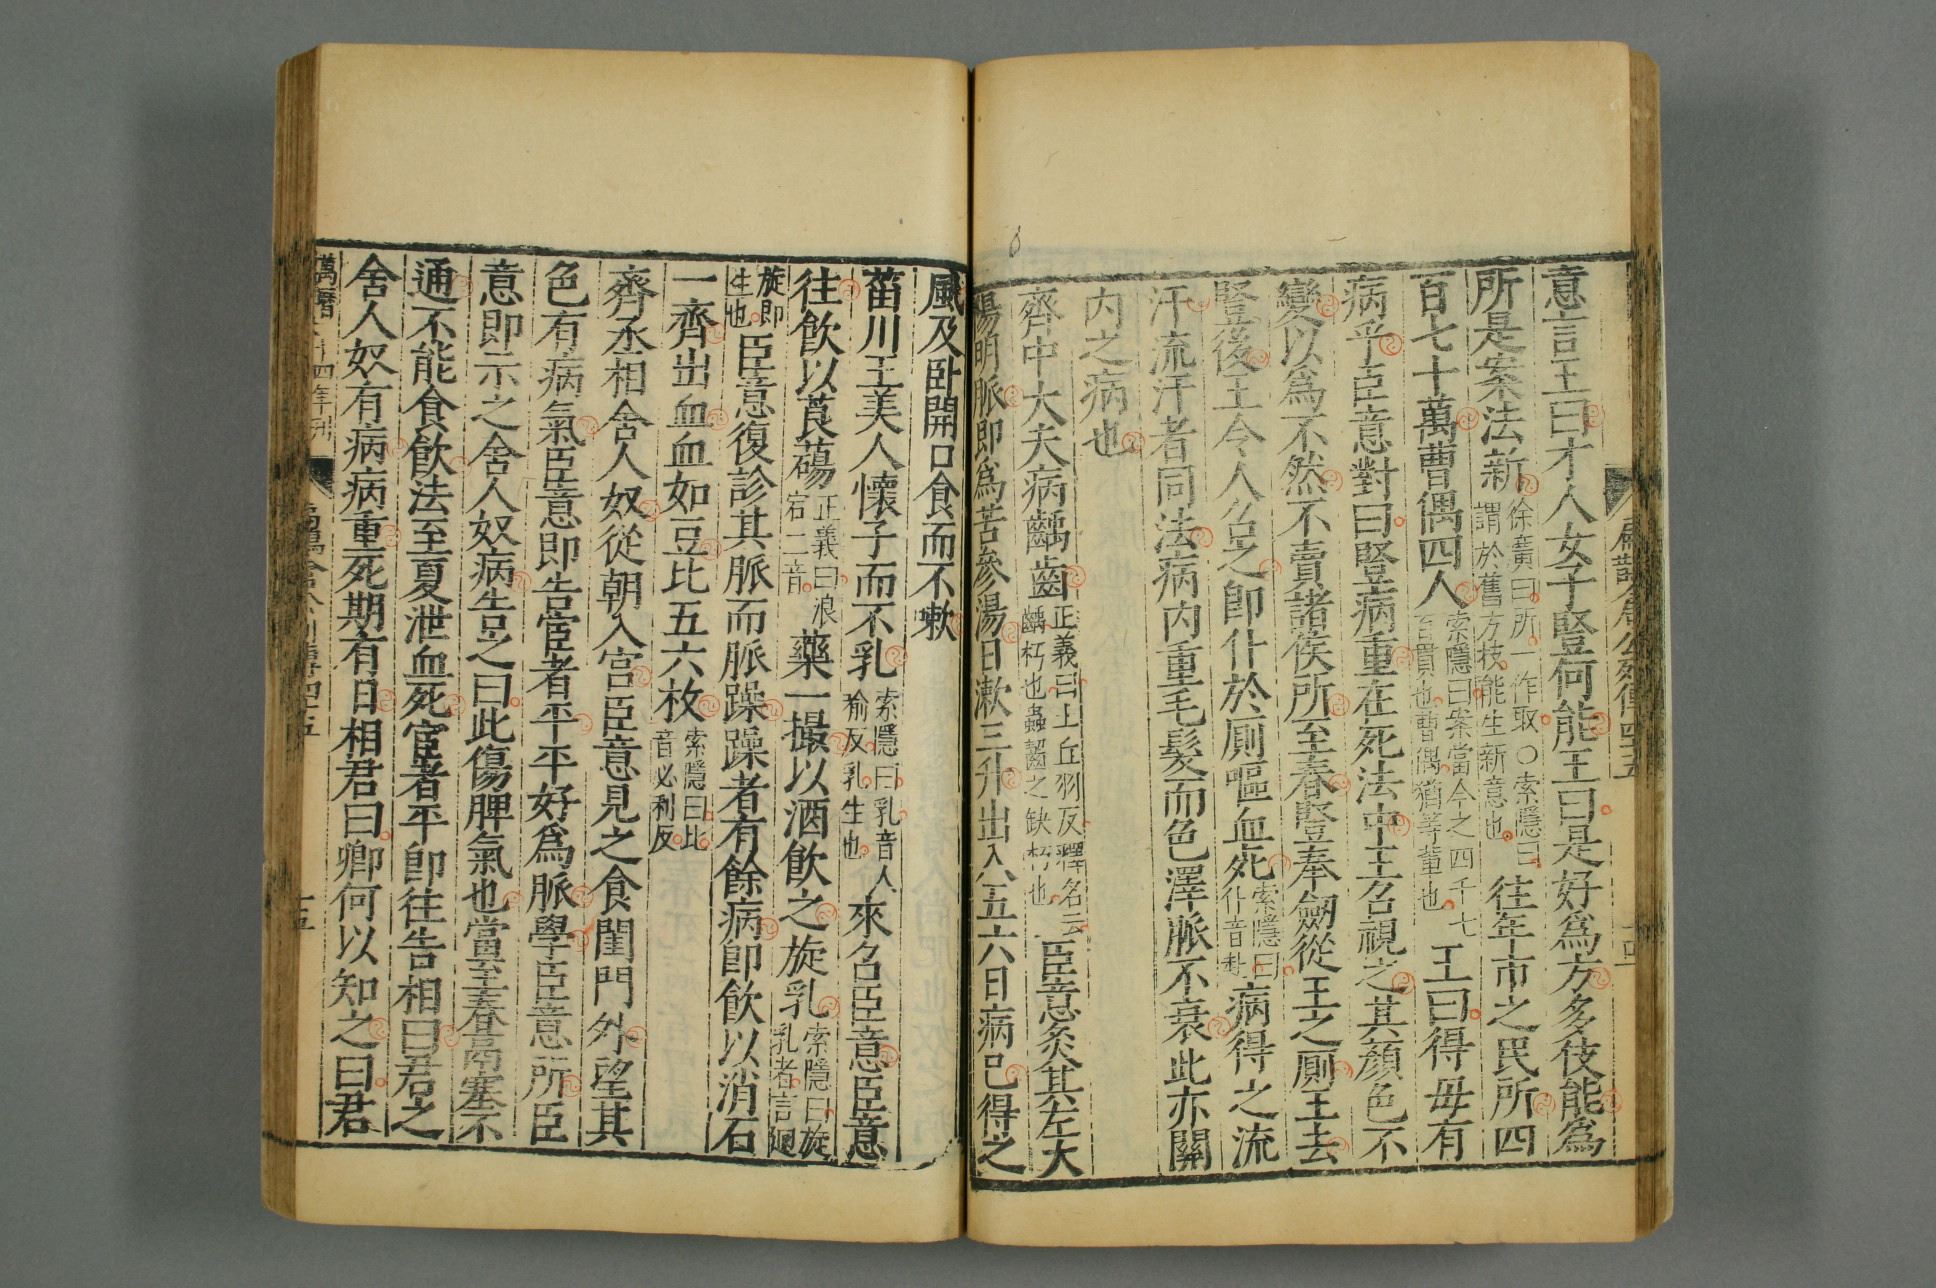 扁鵲倉公列傳四十五
十四
意言王曰才人女子豎何能王曰是好爲方多伎能爲
所是案法新徐廣曰所一作取○索隱曰謂於舊方技能生新意也往年市之民所四
百七十萬曹偶四人索隱曰案當今之四千七百貫也曹偶猶等輩也王曰得毋有
病乎臣意對曰豎病重在死法中王召視之其顏色不
變以爲不然不賣諸侯所至春豎奉劒從王之厠王去
豎後王令人召之卽仆於厠嘔血死索隱曰仆音赴病得之流
汗流汗者同法病内重毛髮而色澤脈不衰此亦關
内之病也
齊中大夫病齲齒正義曰上丘羽反釋名云齲朽也蟲齧之缺朽也臣意灸其左大
陽明脈即爲苦參湯日漱三升出入五六日病已得之
風及卧開口食而不嗽
菑川王美人懷子而不乳索隱曰乳音人喻反乳生也來召臣意臣意
往飮以莨䕞正義曰浪宕二音藥一撮以酒飮之旋乳索隱曰旋乳者言廻
旋即生也臣意復診其脈而脈躁躁者有餘病卽飮以消石
一齊出血血如豆比五六枚索隱曰比音必利反
齊丞相舍人奴從朝入宫臣意見之食閨門外望其
色有病氣臣意即告宦者平平好爲脈學臣意所臣
意即示之舍人奴病告之曰此傷脾氣也當至春鬲塞不
通不能食飮法至夏泄血死宦者平卽往告相曰君之
舍人奴有病病重死期有日相君曰卿何以知之曰君
萬曆二十四年刊
扁鵲倉公列傳四十五
十五